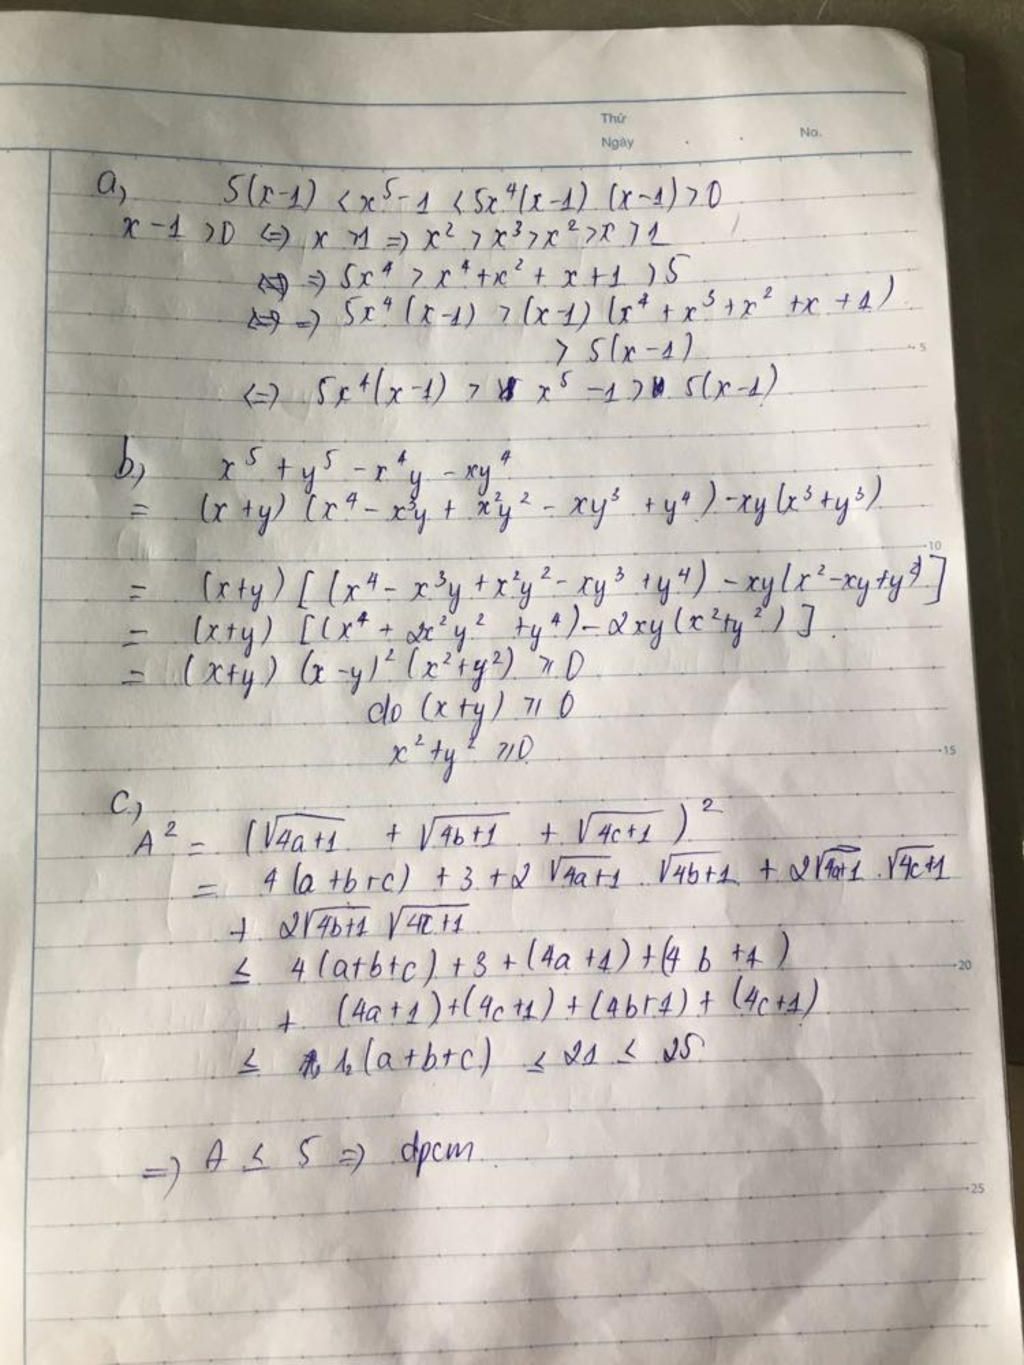 Thứ
Ngày
No.
a, 5(x-1) < x⁵-1 < 5x⁴(x-1) (x-1)>0
x-1 >0 ⇔ x >1 ⇒ x² > x³ > x² > x > 1
⇒ 5x⁴ > x⁴ + x² + x + 1 > 5
⇒ 5x⁴(x-1) > (x-1) (x⁴ + x³ + x² + x + 1)
> 5(x-1)
5
⇔ 5x⁴(x-1) > x⁵ - 1 > 5(x-1)
b,) x⁵ + y⁵ - x⁴y - xy⁴
= (x+y) (x⁴ - x³y + x²y² - xy³ + y⁴) - xy(x³+y³)
10
= (x+y) [(x⁴ - x³y + x²y² - xy³ + y⁴) - xy(x² - xy + y²)]
= (x+y) [(x⁴ + 2x²y² + y⁴) - 2xy(x²+y²)]
= (x+y) (x-y)² (x²+y²) ⩾ 0
do (x+y) ⩾ 0
x² + y² ⩾ 0
15
C,)
A² = (√4a+1 + √4b+1 + √4c+1)²
= 4(a+b+c) + 3 + 2√4a+1 . √4b+1 + 2√4a+1 . √4c+1
+ 2√4b+1 √4c+1
≤ 4(a+b+c) + 3 + (4a+1) + (4b+1)
20
+ (4a+1) + (4c+1) + (4b+1) + (4c+1)
≤ (a+b+c) ≤ 21 ≤ 25
⇒ A ≤ 5 ⇒ dpcm
25